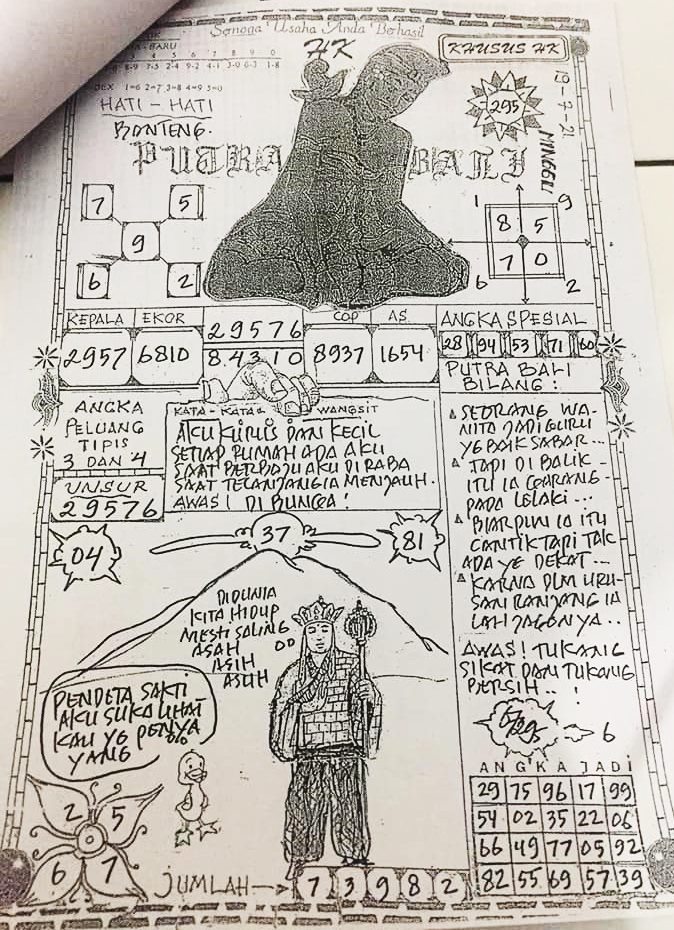 Semoga Usaha Anda Berhasil
HK
KHUSUS HK
BARU
4 5 6 7 8 9 0
8-9 7-5 2-4 9-2 4-1 3-0 6-3 1-8
1=6 2=7 3=8 4=9 5=0
HATI - HATI
BANTENG.
295
MINGGU
PUTRA BALI
7 5
9
6 2
1 9
8 5
7 0
6 2
KEPALA EKOR COP AS
2957 6810 8937 1654
29576
84310
ANGKA SPESIAL
28 94 53 71 60
PUTRA BALI
BILANG :
ANGKA
PELUANG
TIPIS
3 DAN 4
UNSUR
29576
KATA - KATA WANGSIT
AKU KURUS DAN KECIL
SETIAP RUMAH ADA AKU
SAAT BERBAJU AKU DI RABA
SAAT TELANJANG IA MENJAUH.
AWAS! DI BUNGA!
SEORANG WA-
NITA JADI GURU
YG BAIK SABAR...
TAPI DI BALIK
ITU IA GARANG
PADA LELAKI...
BIARPUN IA ITU
CANTIK TAPI TAK
ADA YG DEKAT...
KARNA DLM URU-
SAN RANJANG IA
LAH JAGONYA..
AWAS! TUKANG
SIKAT DAN TUKANG
BERSIH.. !
6
04
37
81
DIDUNIA
KITA HIDUP
MESTI SALING
ASAH
ASIH
ASUH
PENDETA SAKTI
AKU SUKA LIHAT
KAU YG PENYA
YANG
2 5
6 7
JUMLAH
7 3 9 8 2
ANGKA JADI
29 75 96 17 99
54 02 35 22 06
66 49 77 05 92
82 55 69 57 39